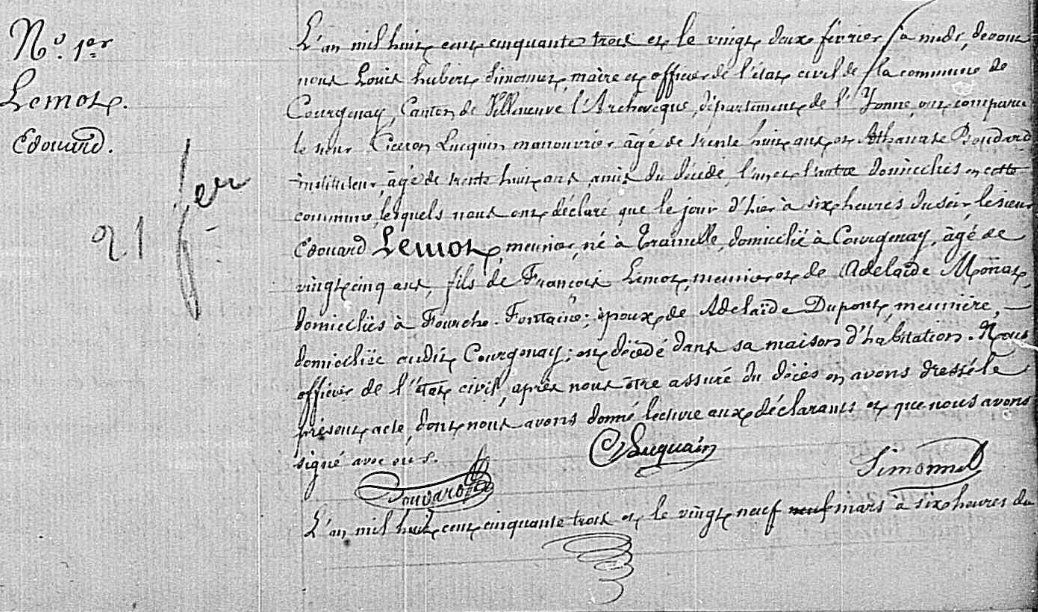 N.o 1er
Lemot.
Edouard.
21 fer
L'an mil huit cent cinquante trois et le vingt deux février à midi, devant
nous Louis hubert Simonnet, maire et officier de l'état civil de la commune de
Courgenay, Canton de Villeneuve l'Archevêque, département de l'Yonne, ont comparu
le sieur Ciceron Lucquin manouvrier âgé de trente huit ans et Athanase Boudard
instituteur, âgé de trente huit ans, amis du décédé, l'un et l'autre domiciliés en cette
commune, lesquels nous ont déclaré que le jour d'hier à six heures du soir le sieur
Edouard Lemot, meunier, né à Trainelle, domicilié à Courgenay, âgé de
vingt cinq ans, fils de François Lemot, meunier et de Adelaïde
domiciliés à Fourche-Fontaine; époux de Adelaïde Dupont, meunière,
domiciliée audit Courgenay; est décédé dans sa maison d'habitation. Nous
officier de l'état civil, après nous être assuré du décès en avons dressé le
présent acte, dont nous avons donné lecture aux déclarants et que nous avons
signé avec eux.
Simonnet
L'an mil huit cent cinquante trois et le vingt neuf neuf mars à six heures du